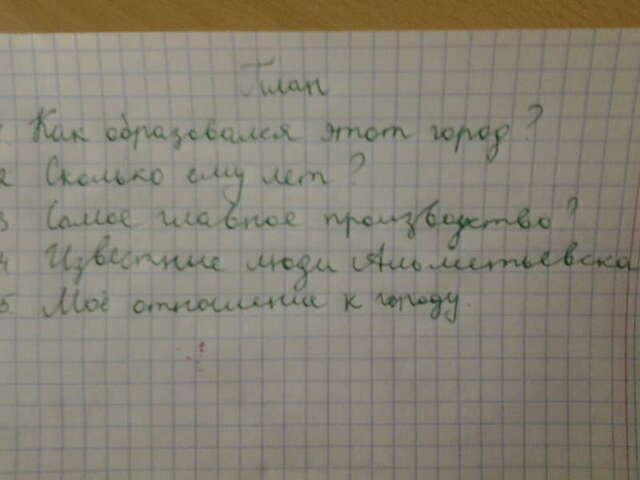 План
1 Как образовался этот город?
2 Сколько ему лет?
3 Самое главное производство?
4 Известные люди Альметьевска
5 Моё отношение к городу.